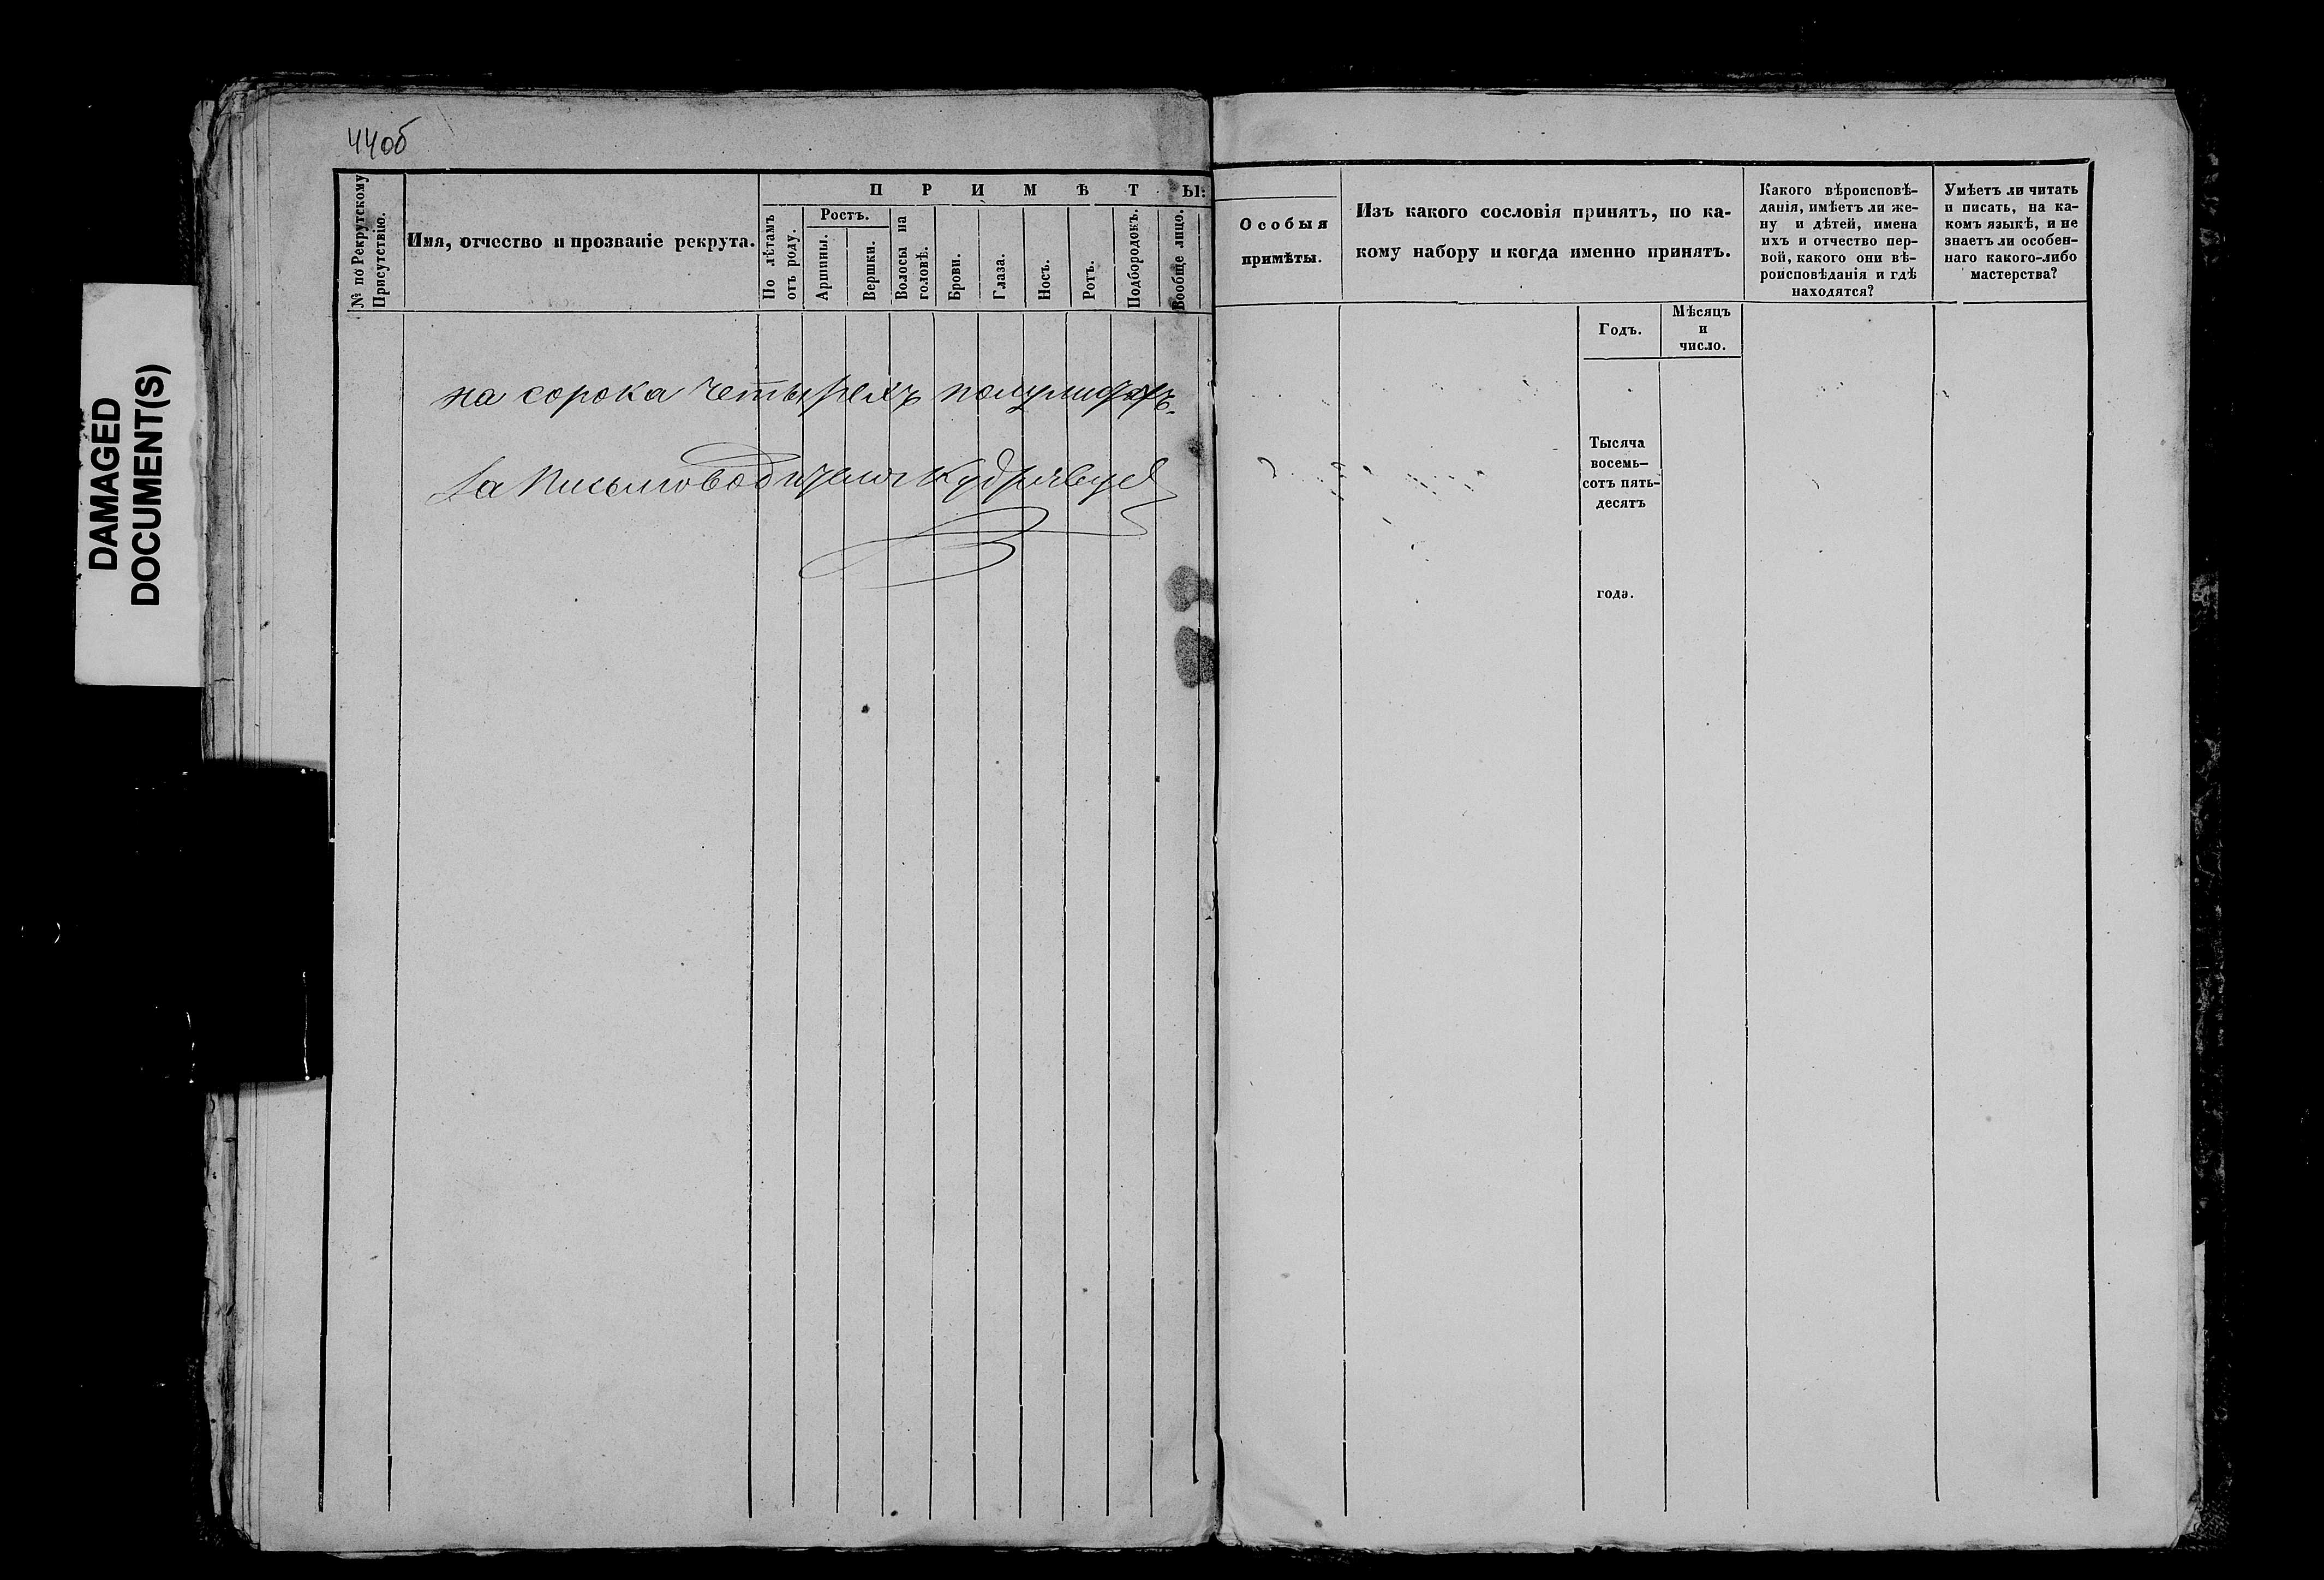 44об
DAMAGED
DOCUMENT(S)
№ по Рекрутскому
Присутствію.
Имя, отчество и прозваніе рекрута.
ПРИМѢТЫ:
По лѣтамъ
отъ роду.
Ростъ.
Аршины.
Вершки.
Волосы на
головѣ.
Брови.
Глаза.
Носъ.
Ротъ.
Подбородокъ.
Вообще лицо.
Особыя
примѣты.
Изъ какого сословія принятъ, по ка-
кому набору и когда именно принятъ.
Годъ.
Мѣсяцъ
и
число.
Какого вѣроисповѣ-
данія, имѣетъ ли же-
ну и дѣтей, имена
ихъ и отчество пер-
вой, какого они вѣ-
роисповѣданія и гдѣ
находятся?
Умѣетъ ли читать
и писать, на ка-
комъ языкѣ, и не
знаетъ ли особен-
наго какого-либо
мастерства?
на сорока четырехъ полулистахъ.
За Письмоводителя Кудрявцев
Тысяча
восемь-
сотъ пять-
десятъ
года.